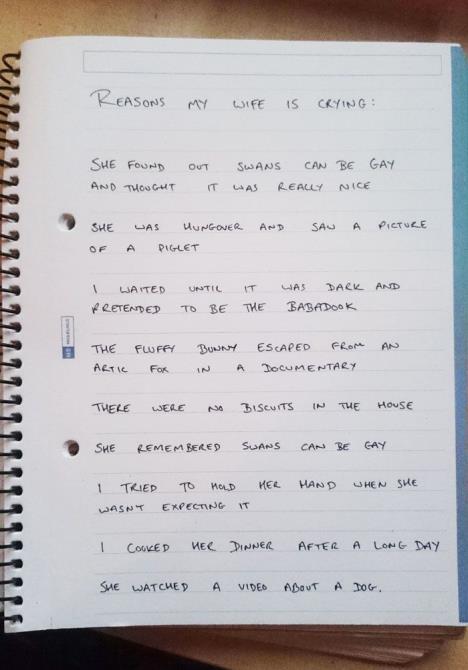 REASONS MY WIFE IS CRYING:
SHE FOUND OUT SWANS CAN BE GAY
AND THOUGHT IT WAS REALLY NICE
SHE WAS HUNGOVER AND SAW A PICTURE
OF A PIGLET
I WAITED UNTIL IT WAS DARK AND
PRETENDED TO BE THE BABADOOK
THE FLUFFY BUNNY ESCAPED FROM AN
ARTIC FOX IN A DOCUMENTARY
THERE WERE NO BISCUITS IN THE HOUSE
SHE REMEMBERED SWANS CAN BE GAY
I TRIED TO HOLD HER HAND WHEN SHE
WASNT EXPECTING IT
I COOKED HER DINNER AFTER A LONG DAY
SHE WATCHED A VIDEO ABOUT A DOG.